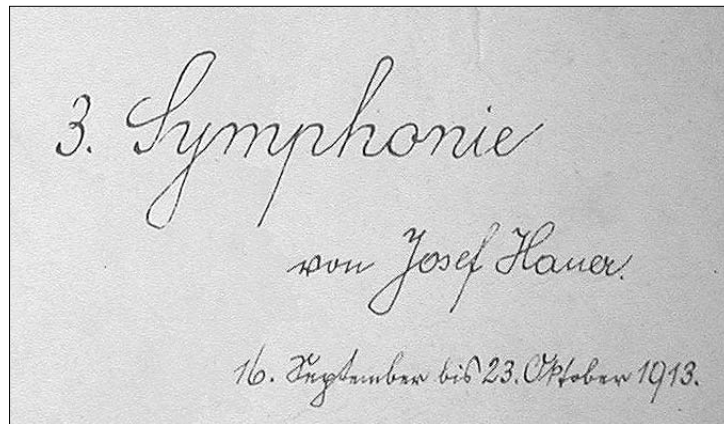 3. Symphonie
von Josef Hauer.
16. September bis 23. Oktober 1913.